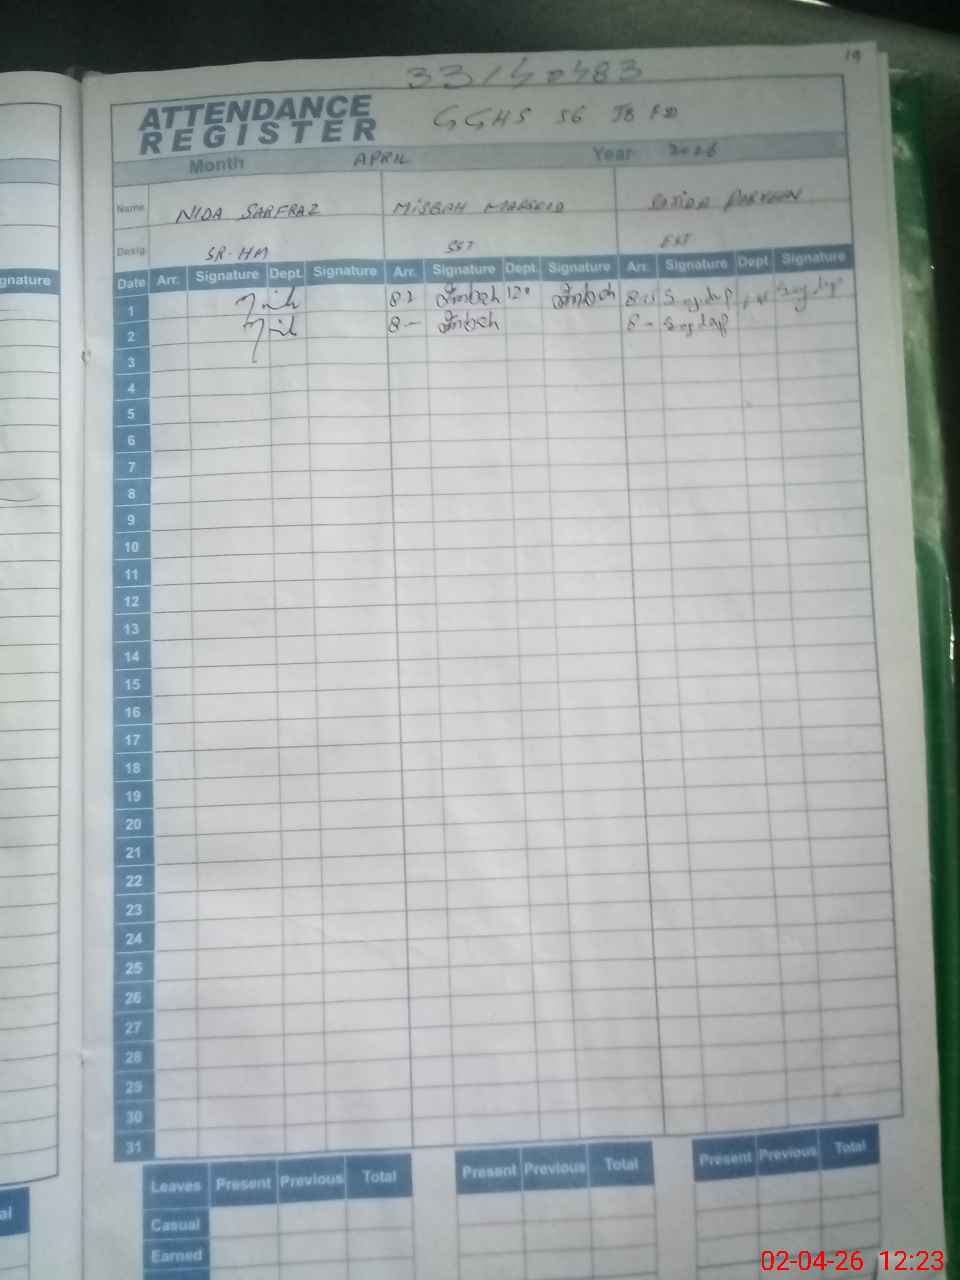 19
33140483
ATTENDANCE
REGISTER
GGHS 56 JB FSD
Month APRIL Year 2026
Name NIDA SARFRAZ MISBAH PARVEEN
Desig. SR-HM SST EST
gnature
Date Arr. Signature Dept. Signature Arr. Signature Dept. Signature Arr. Signature Dept. Signature
1
2 8 - 8 -
3
4
5
6
7
8
9
10
11
12
13
14
15
16
17
18
19
20
21
22
23
24
25
26
27
28
29
30
31
al
Leaves Present Previous Total Present Previous Total Present Previous Total
Casual
Earned
02-04-26 12:23